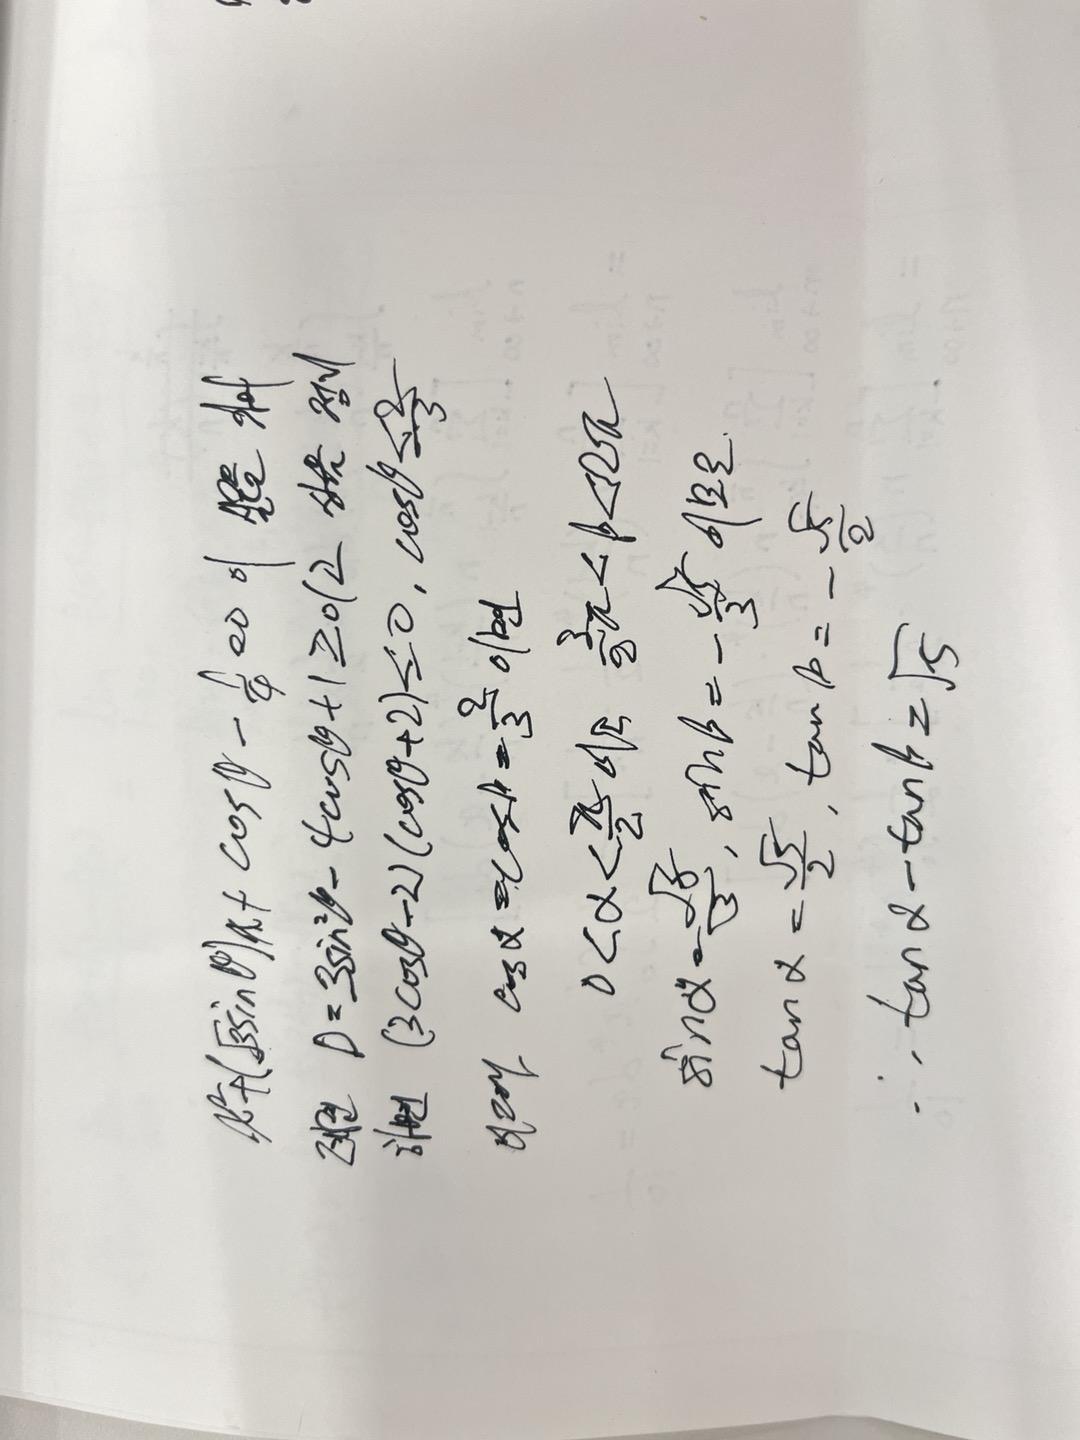 x²+(√3sinθ)x+cosθ-1/4=0이 실근을 가
려면 D=3sin²θ-4cosθ+1≥0(2 정리
하면 (3cosθ-2)(cosθ+2)≤0, cosθ≤2/3
여기서 cosα=cosβ=2/3이면
0<α<π/2이고 3/2π<β<2π
sinα=√5/3, sinβ=-√5/3이므로
tanα=√5/2, tanβ=-√5/2
∴ tanα-tanβ=√5